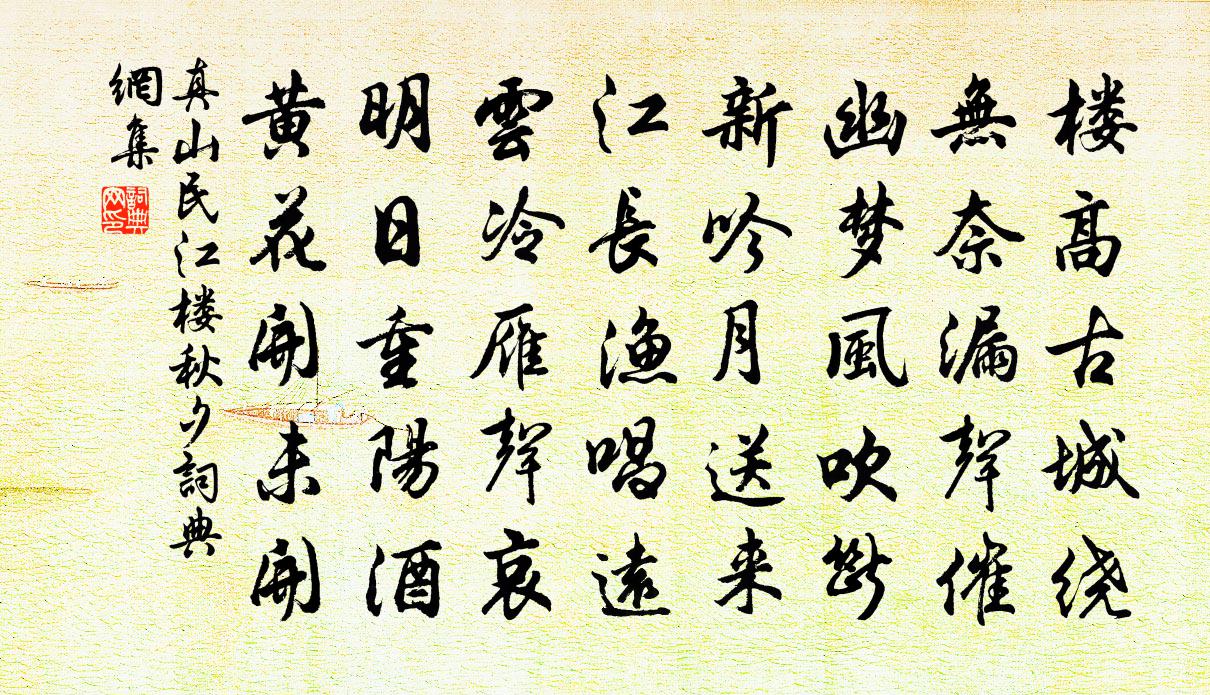 楼高古城绕
無奈漏聲催
幽梦風吹斷
新吟月送来
江長漁唱遠
雲冷雁聲哀
明日重陽酒
黄花開未開
真山民江楼秋夕詞典
網集
詞典